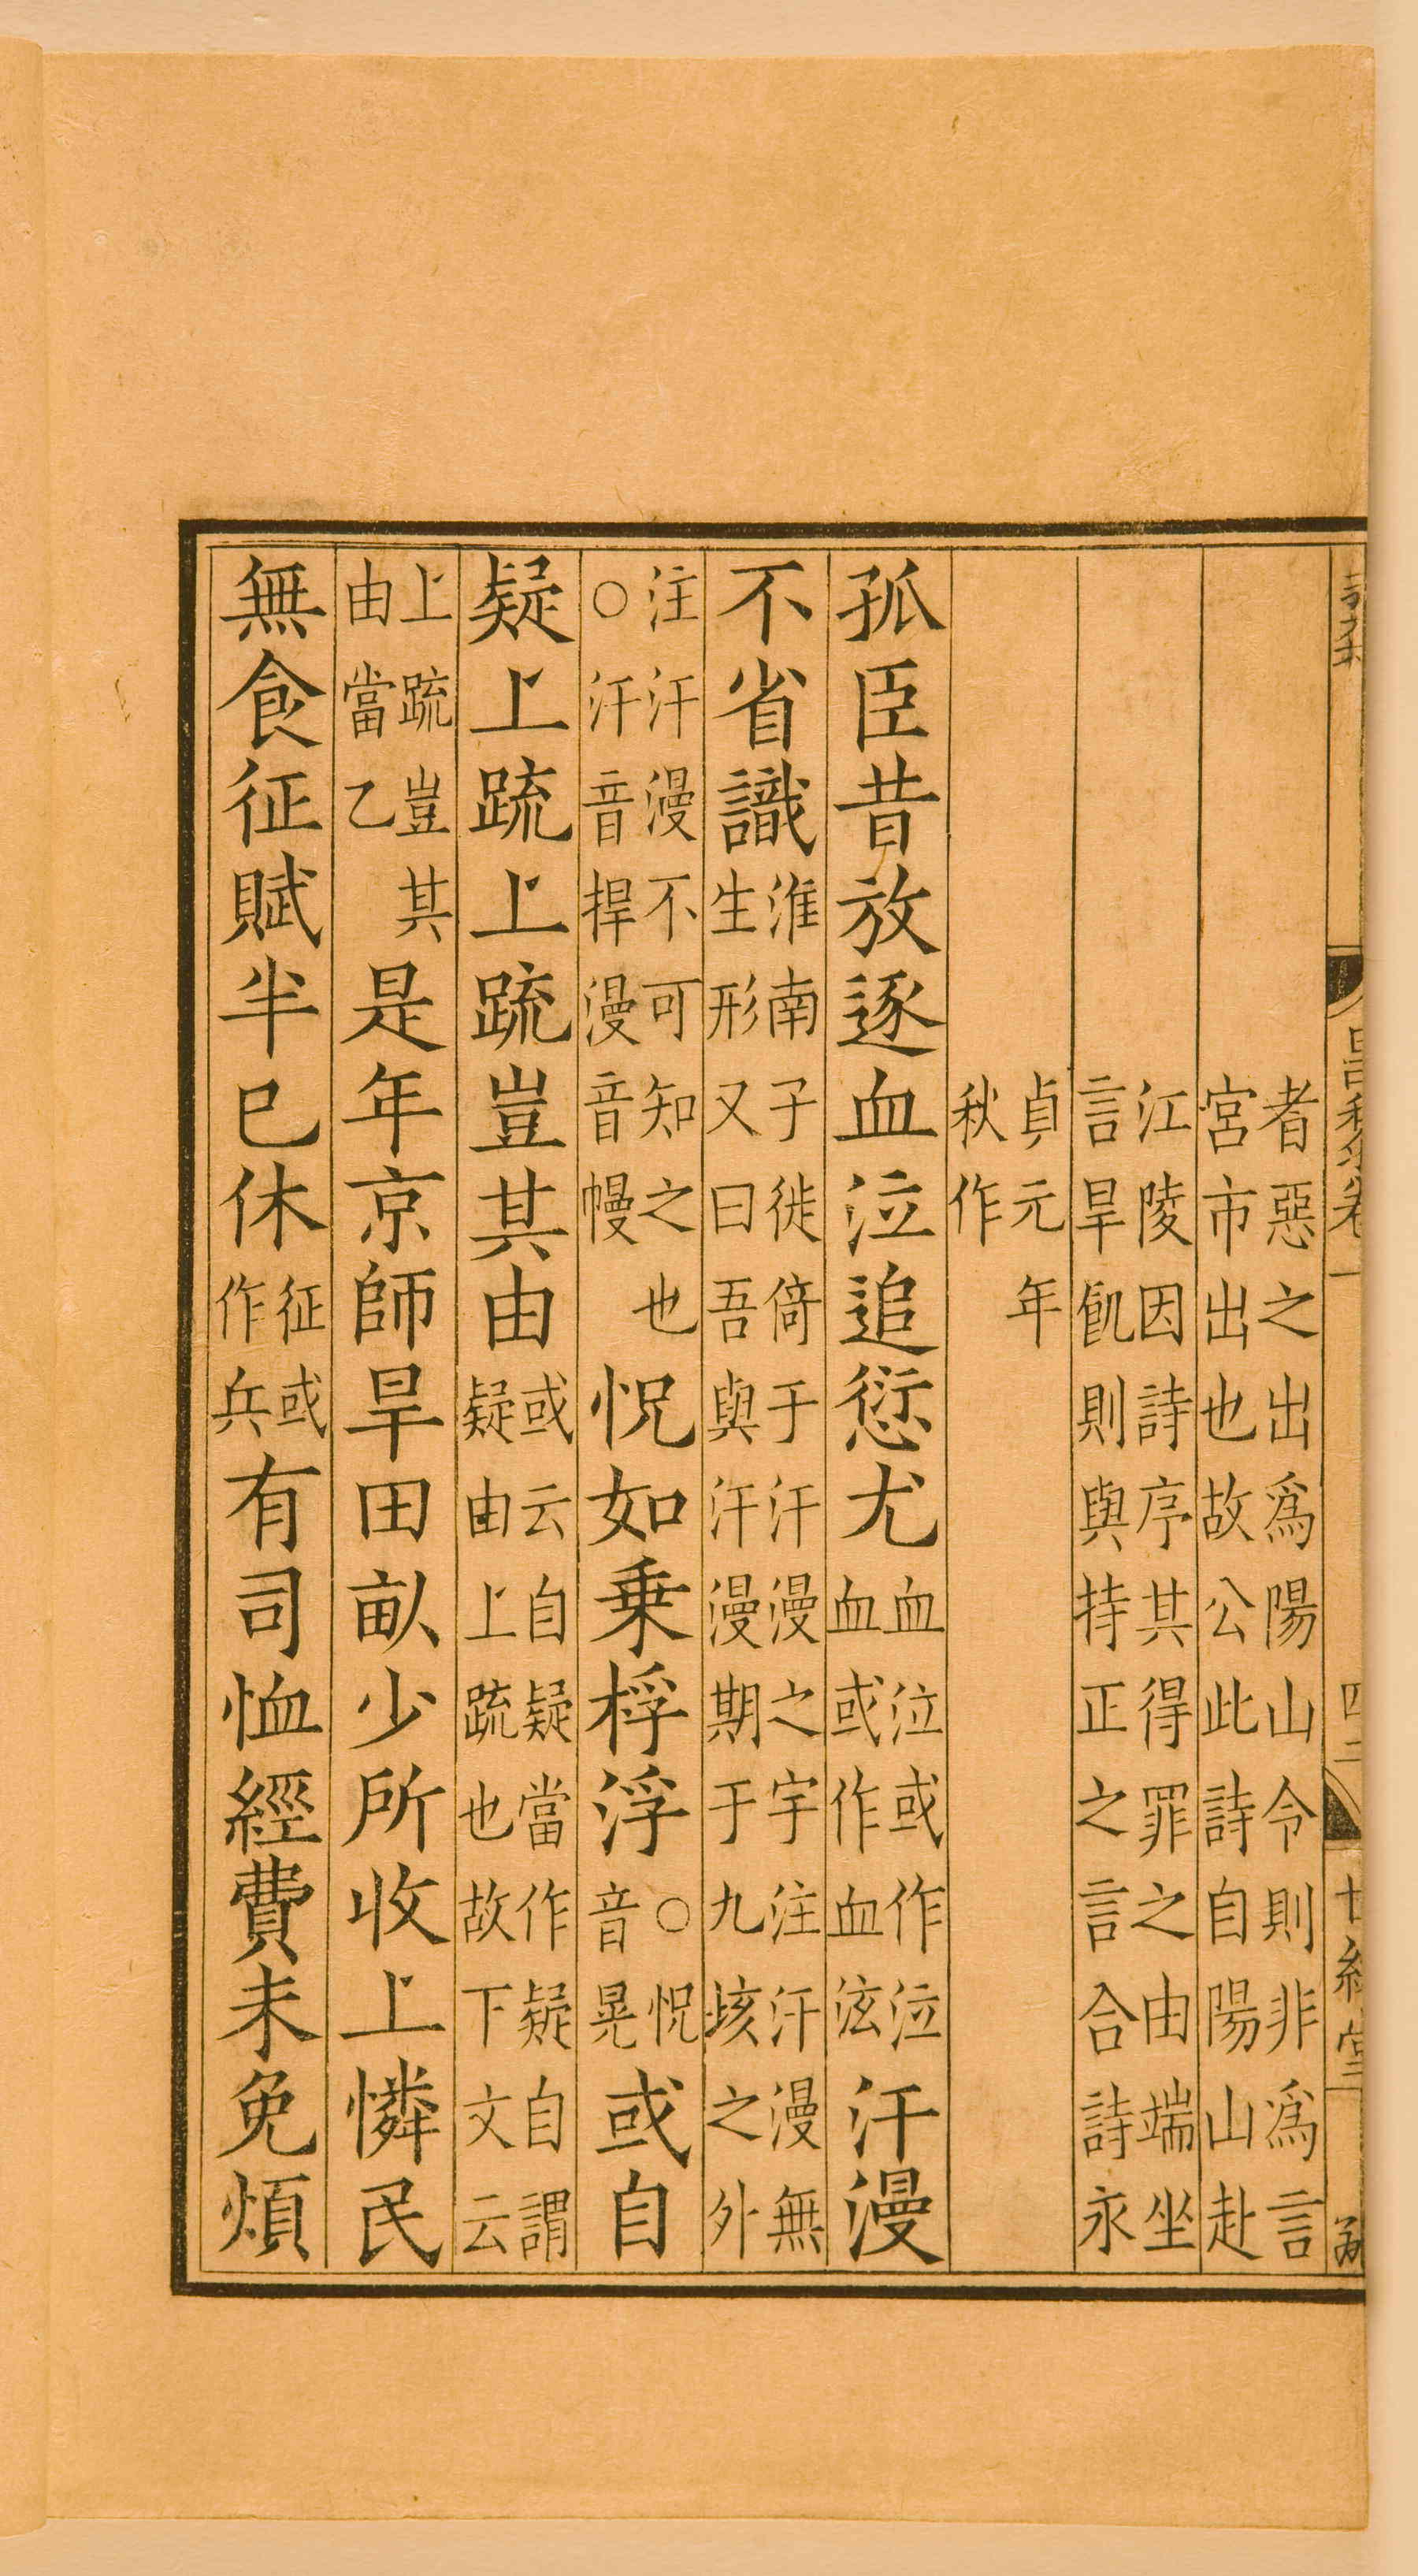 者惡之出爲陽山令則非爲言
宮市出也故公此詩自陽山赴
江陵因詩序其得罪之由端坐
言旱飢則與持正之言合詩永
貞元年
秋作
孤臣昔放逐血泣追愆尤血泣或作泣
血或作血泫汗漫
不省識淮南子徙倚于汗漫之宇注汗漫無
生形又曰吾與汗漫期于九垓之外
注汗漫不可知之也
○汗音捍漫音幔怳如乗桴浮○怳
音晃或自
疑上疏上疏豈其由或云自疑當作疑自謂
疑由上疏也故下文云
上疏豈其
由當乙是年京師旱田畝少所收上憐民
無食征賦半已休征或
作兵有司恤經費未免煩